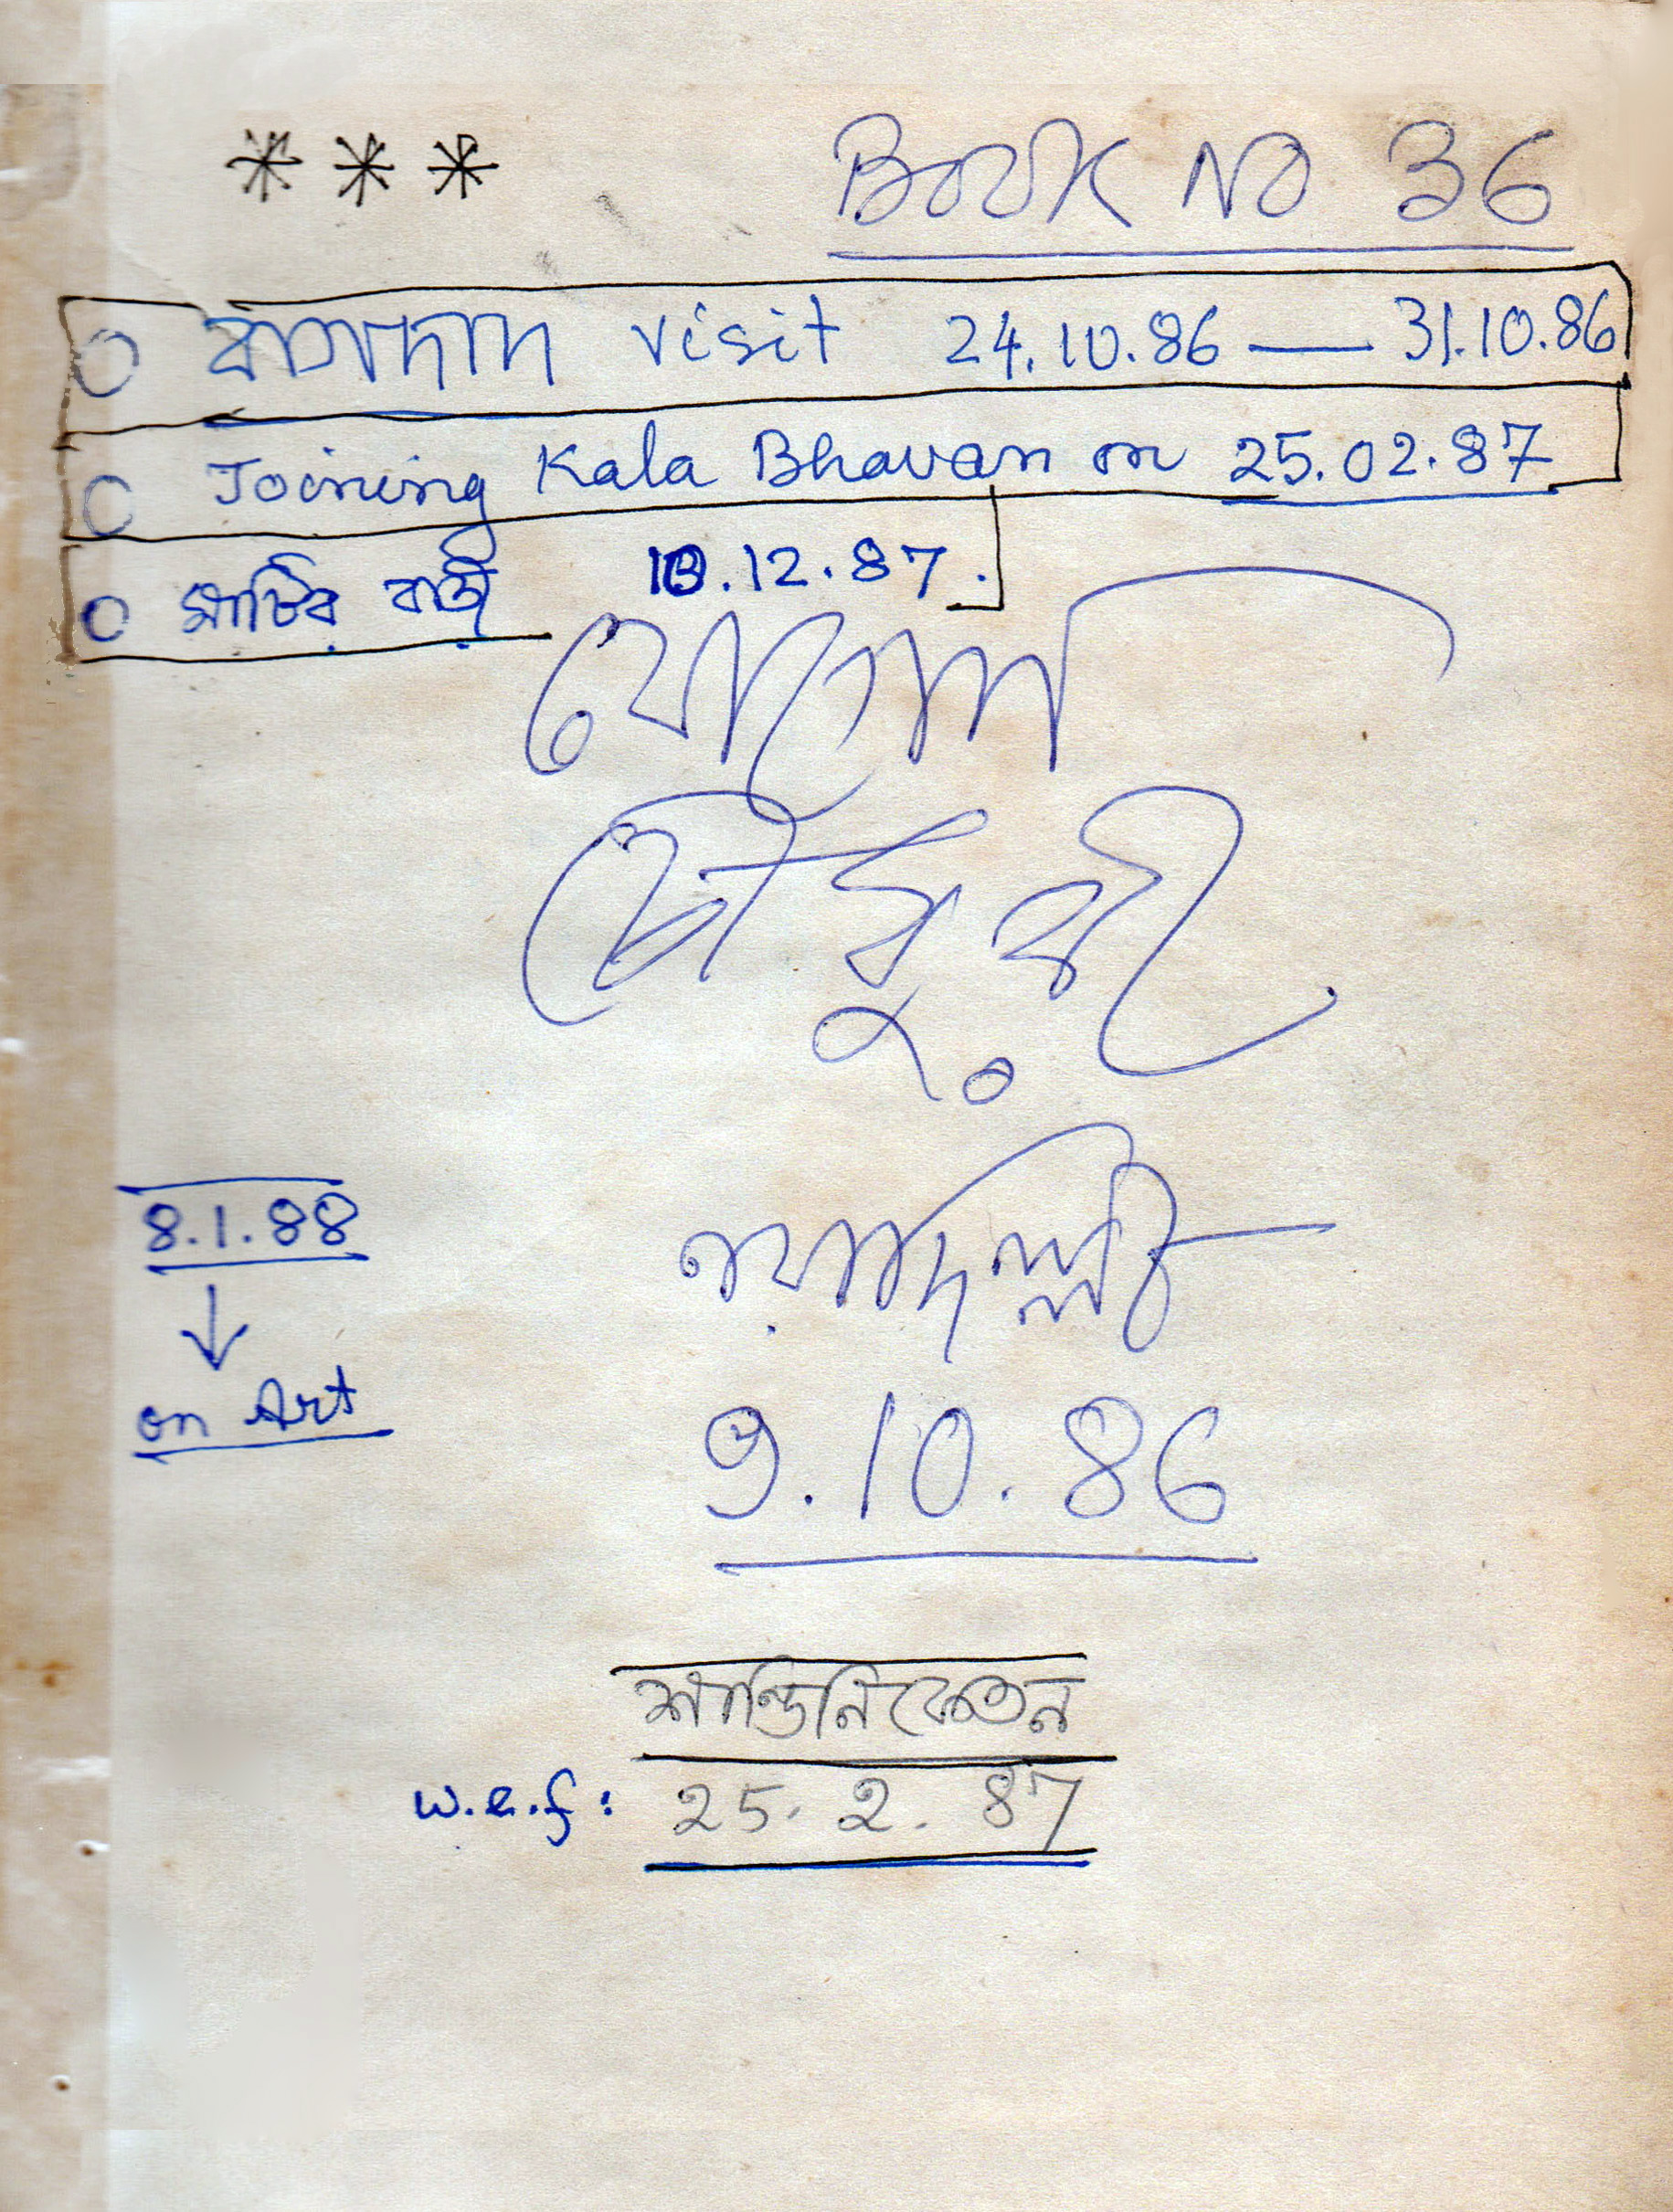 * * *
BOOK NO 36
visit 24.10.86 — 31.10.86
Joining Kala Bhavan on 25.02.87
মাটির বাড়ী 10.12.87.
যোগেন
চৌধুরী
নয়াদিল্লী
9.10.86
8.1.88
↓
on Art
শান্তিনিকেতন
w.e.f: 25.2.87